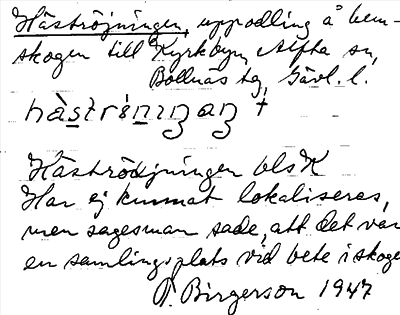 Häströjningen, uppodling å hem-
skogen till Kyrkbyn, Alfta sn,
Bollnäs tg, Gävl. l.
hàströ̀nɩŋaŋ †
Häströdjningen bls K
Har ej kunnat lokaliseras,
men sagesman sade, att det var
en samlingsplats vid bete i skoge
T. Birgerson 1947